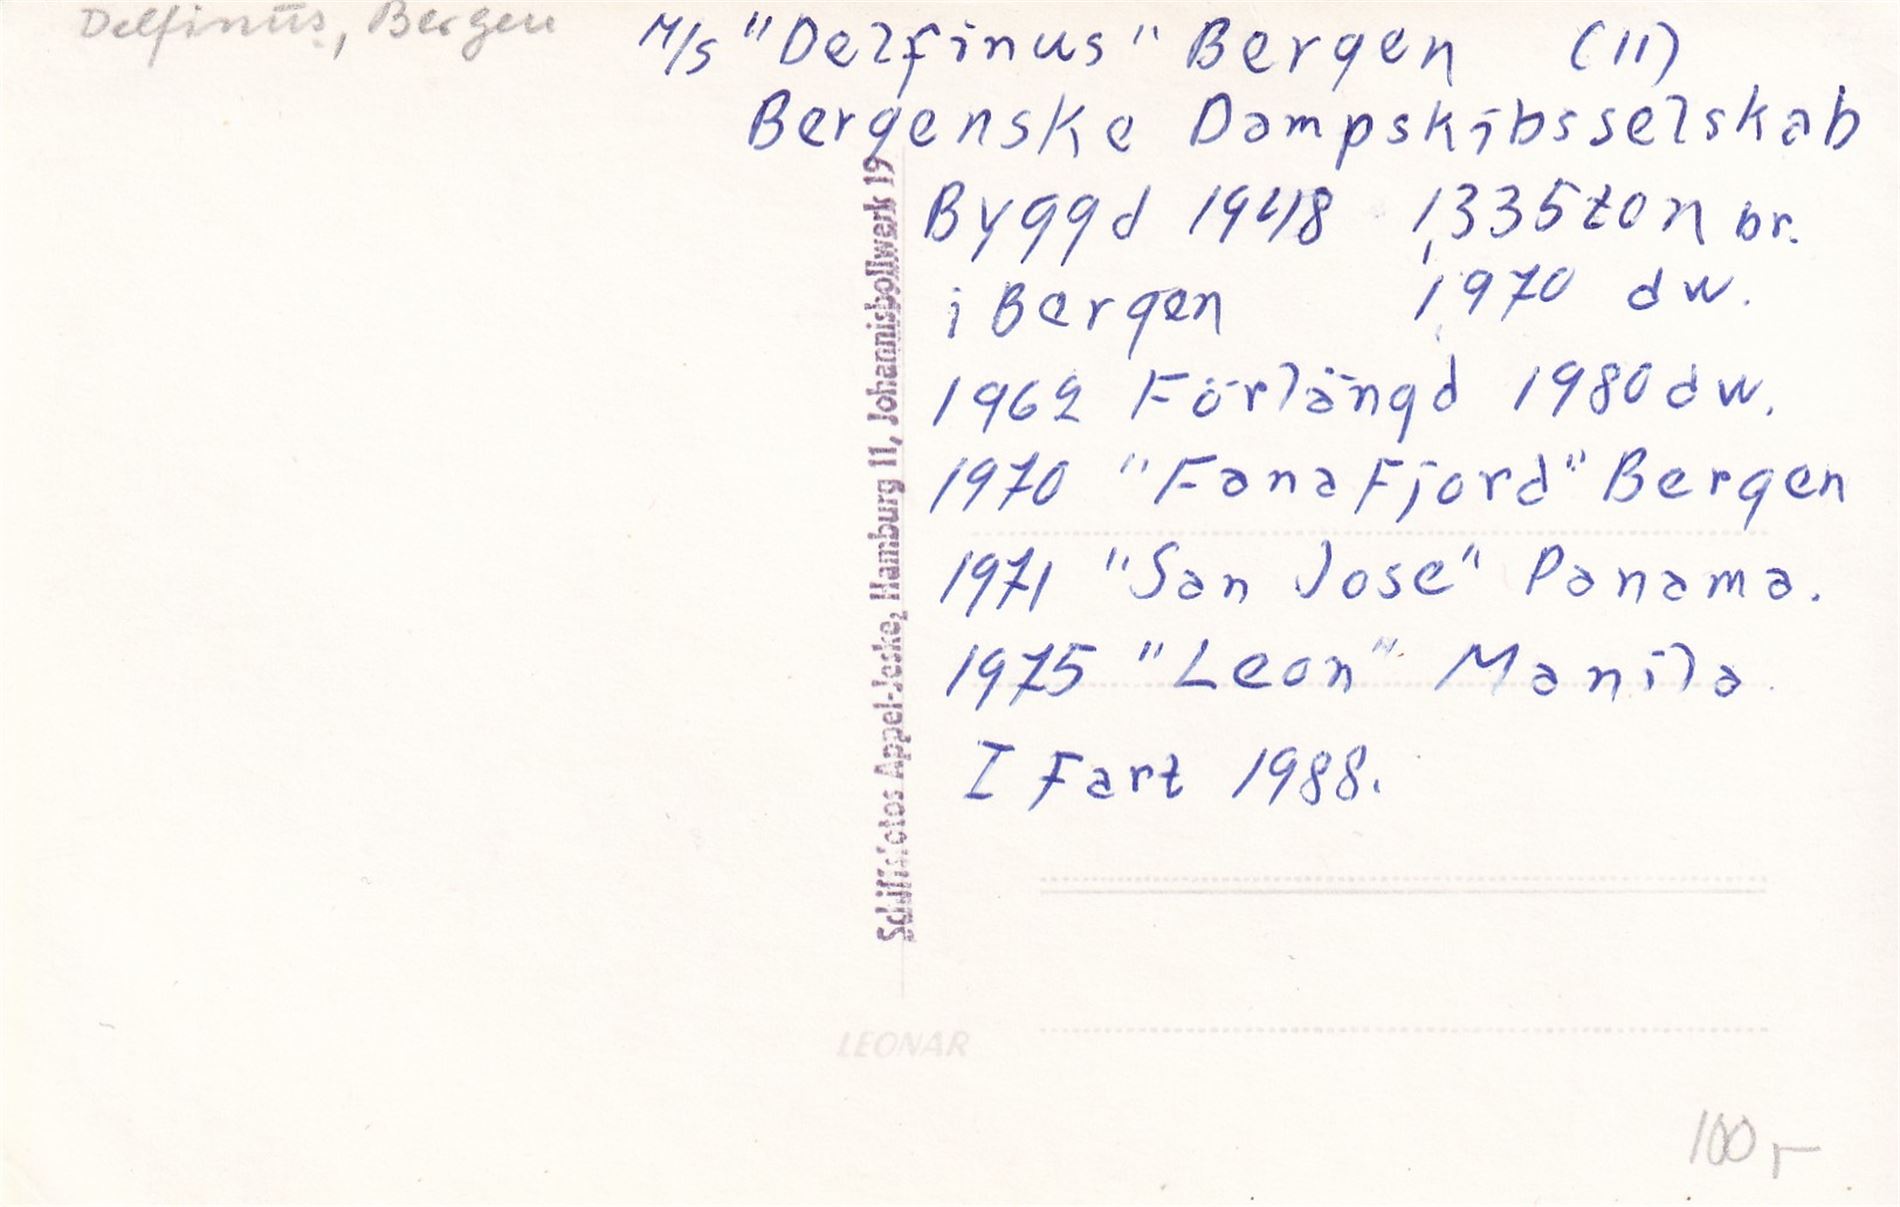 Delfinus, Bergen
M/S "Delfinus" Bergen (II)
Bergenske Dampskibsselskab
Byggd 1948 1335 ton br.
i Bergen 1970 dw.
1962 Förlängd 1980 dw.
1970 "Fanafjord" Bergen
1971 "San Jose" Panama.
1975 "Leon" Manila.
I Fart 1988.
Schiffsfotos Appel-Jeske, Hamburg 11, Johannisbollwerk 19
LEONAR
100,-